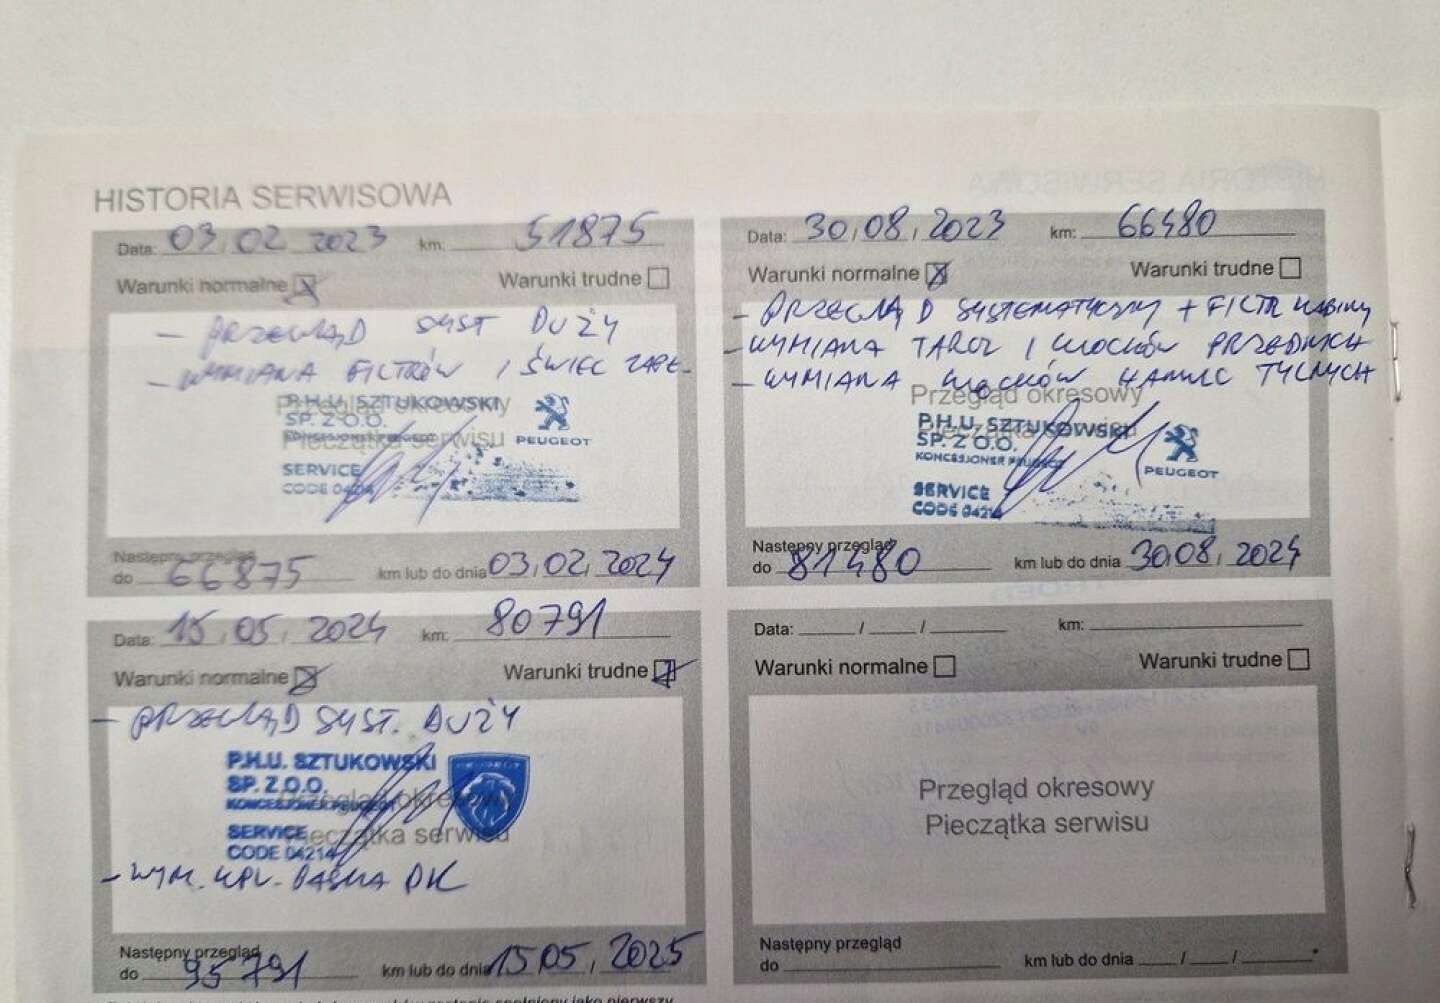 HISTORIA SERWISOWA
Data: 03.02.2023 km: 51875
Warunki normalne Warunki trudne
- PRZEGLĄD SYST DUŻY
- WYMIANA FILTRÓW I ŚWIEC ZAPŁ.
Przegląd okresowy
Pieczątka serwisu
P.H.U. SZTUKOWSKI
SP. Z O.O.
KONCESJONER PEUGEOT
PEUGEOT
SERVICE
CODE
Następny przegląd
do 66875 km lub do dnia 03.02.2024
Data: 30.08.2023 km: 66480
Warunki normalne Warunki trudne
- PRZEGLĄD SYSTEMATYCZNY + FILTR KABINY
- WYMIANA TARCZ I KLOCKÓW PRZEDNICH
- WYMIANA KLOCKÓW HAMULC TYLNYCH
Przegląd okresowy
Pieczątka serwisu
P.H.U. SZTUKOWSKI
SP. Z O.O.
KONCESJONER PEUGEOT
PEUGEOT
SERVICE
CODE 04214
Następny przegląd
do 81480 km lub do dnia 30.08.2024
Data: 15.05.2024 km: 80791
Warunki normalne Warunki trudne
- PRZEGLĄD SYST. DUŻY
P.H.U. SZTUKOWSKI
SP. Z O.O.
KONCESJONER PEUGEOT
PEUGEOT
Przegląd okresowy
Pieczątka serwisu
SERVICE
CODE 04214
- WYM. KPL. PASKA PK
Następny przegląd
do 95791 km lub do dnia 15.05.2025
Data: / / km:
Warunki normalne Warunki trudne
Przegląd okresowy
Pieczątka serwisu
Następny przegląd
do km lub do dnia / /